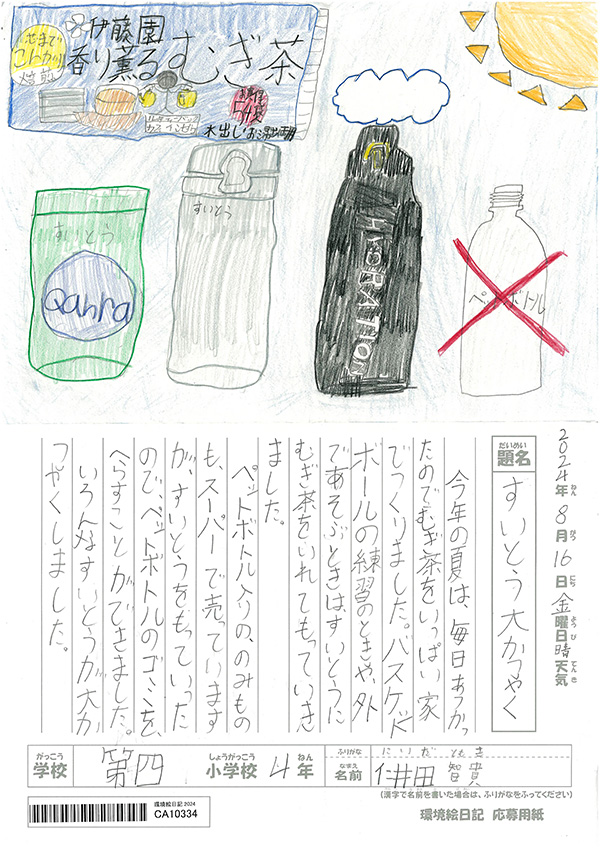 伊藤園
香り薫るむぎ茶
せまで
こんがり
焙煎
水出し・お湯出し両用
すいとう
Qahra
すいとう
HYDRATION
ペットボトル
2024年ねん8月がつ16日にち金曜日ようび晴天気てんき
だいめい
題名
すいとう大かつやく
今年の夏は、毎日あつかっ
たのでむぎ茶をいっぱい家
でつくりました。バスケット
ボールの練習のときや、外
であそぶときはすいとうに
むぎ茶をいれてもっていき
ました。
ペットボトル入りの、のみもの
も、スーパーで売っています
が、すいとうをもっていった
ので、ペットボトルのゴミを、
へらすことができました。
いろんなすいとうが大か
つやくしました。
がっこう
学校
第四
しょうがっこう
小学校
4
ねん
年
ふりがな
にいだ ともき
なまえ
名前
仁井田 智貴
(漢字で名前を書いた場合は、ふりがなをふってください)
環境絵日記 2024
CA10334
環境絵日記 応募用紙